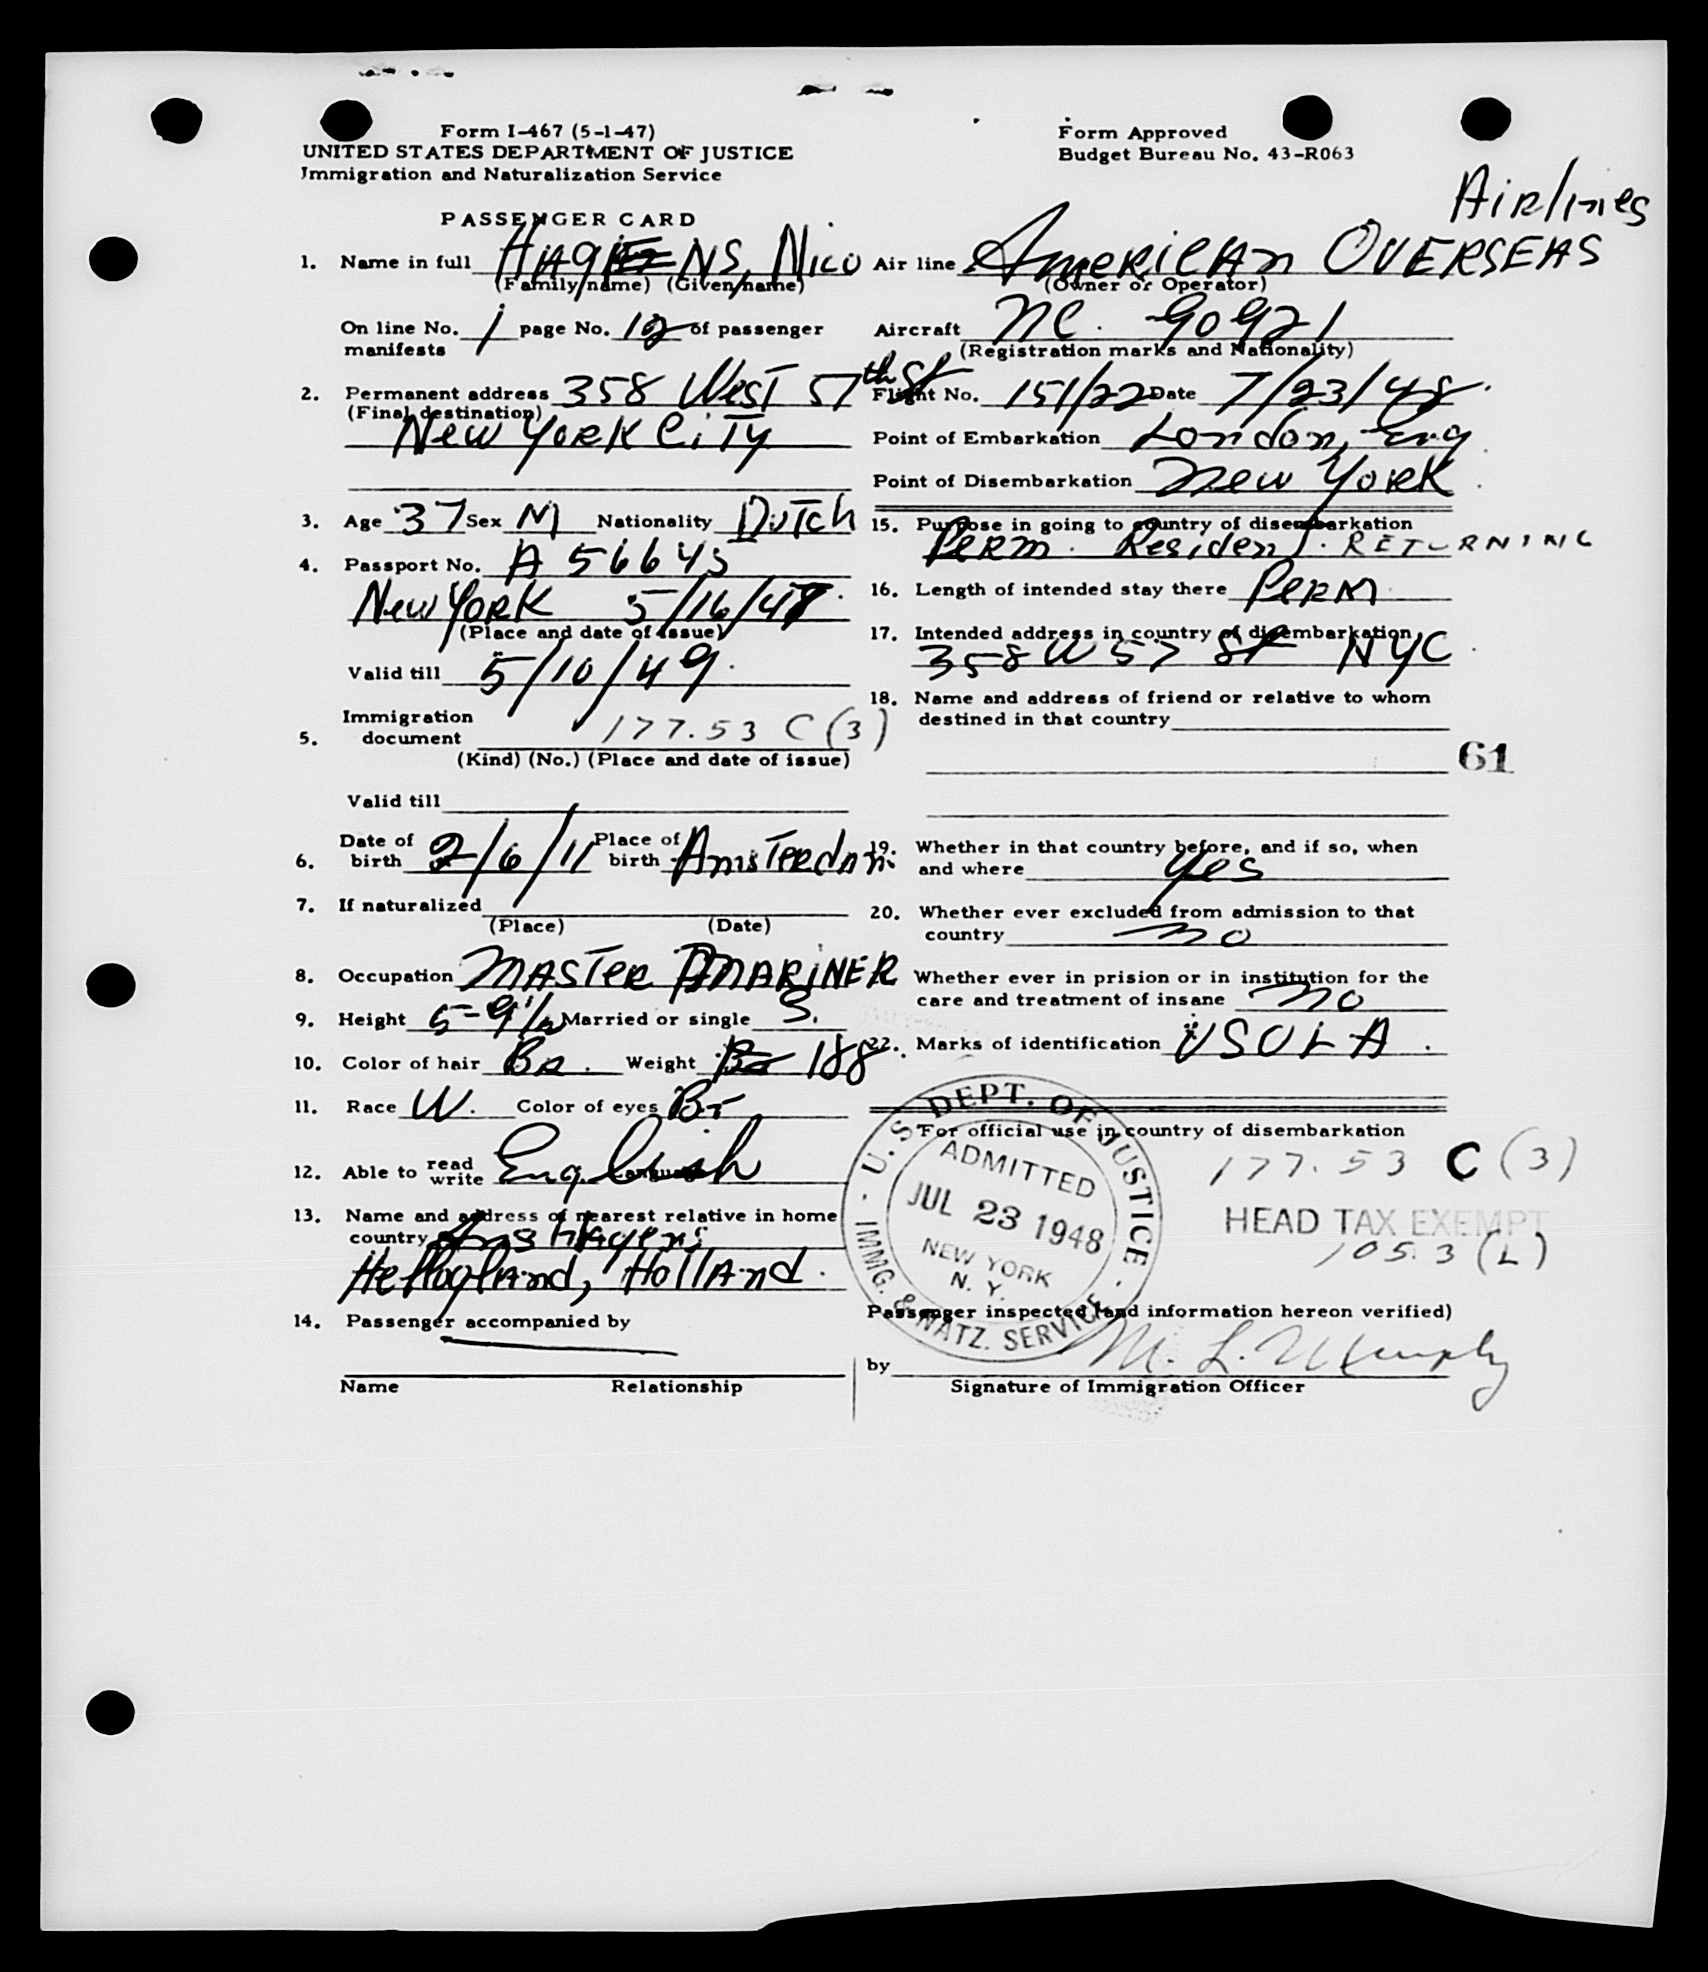 Form I-467 (5-1-47)
UNITED STATES DEPARTMENT OF JUSTICE
Immigration and Naturalization Service
Form Approved
Budget Bureau No. 43-R063
PASSENGER CARD
1. Name in full NS, Nico
(Family name) (Given name)
On line No. 1 page No. 12 of passenger
manifests
2. Permanent address 358 West 57th St
(Final destination)
New York City
3. Age 37 Sex M Nationality Dutch
4. Passport No. A 56645
New York 5/16/47
(Place and date of issue)
Valid till 5/10/49.
5. Immigration
document 177.53 C (3)
(Kind) (No.) (Place and date of issue)
Valid till
6. Date of birth 2/6/11 Place of birth Amsterdam
7. If naturalized
(Place) (Date)
8. Occupation MASTER MARINER
9. Height 5-9 1/2 Married or single S.
10. Color of hair Br. Weight 188
11. Race W. Color of eyes Br
12. Able to read write English Language
13. Name and address of nearest relative in home
country Hagens
Holland.
14. Passenger accompanied by
Name Relationship
Airlines
Air line American OVERSEAS
(Owner or Operator)
Aircraft NC. 90921
(Registration marks and Nationality)
Flight No. 151/22 Date 7/23/48.
Point of Embarkation London, Eng
Point of Disembarkation New York
15. Purpose in going to country of disembarkation
Perm. Resident. RETURNING
16. Length of intended stay there Perm
17. Intended address in country of disembarkation
358 W 57 St NYC
18. Name and address of friend or relative to whom
destined in that country
61
19. Whether in that country before, and if so, when
and where yes
20. Whether ever excluded from admission to that
country no
Whether ever in prision or in institution for the
care and treatment of insane no
22. Marks of identification VSOLA.
For official use in country of disembarkation
177.53 C (3)
HEAD TAX EXEMPT
105.3 (L)
U.S. DEPT. OF JUSTICE
ADMITTED
JUL 23 1948
NEW YORK
N. Y.
IMMG. & NATZ. SERVICE
Passenger inspected (and information hereon verified)
by M. L. Murphy
Signature of Immigration Officer